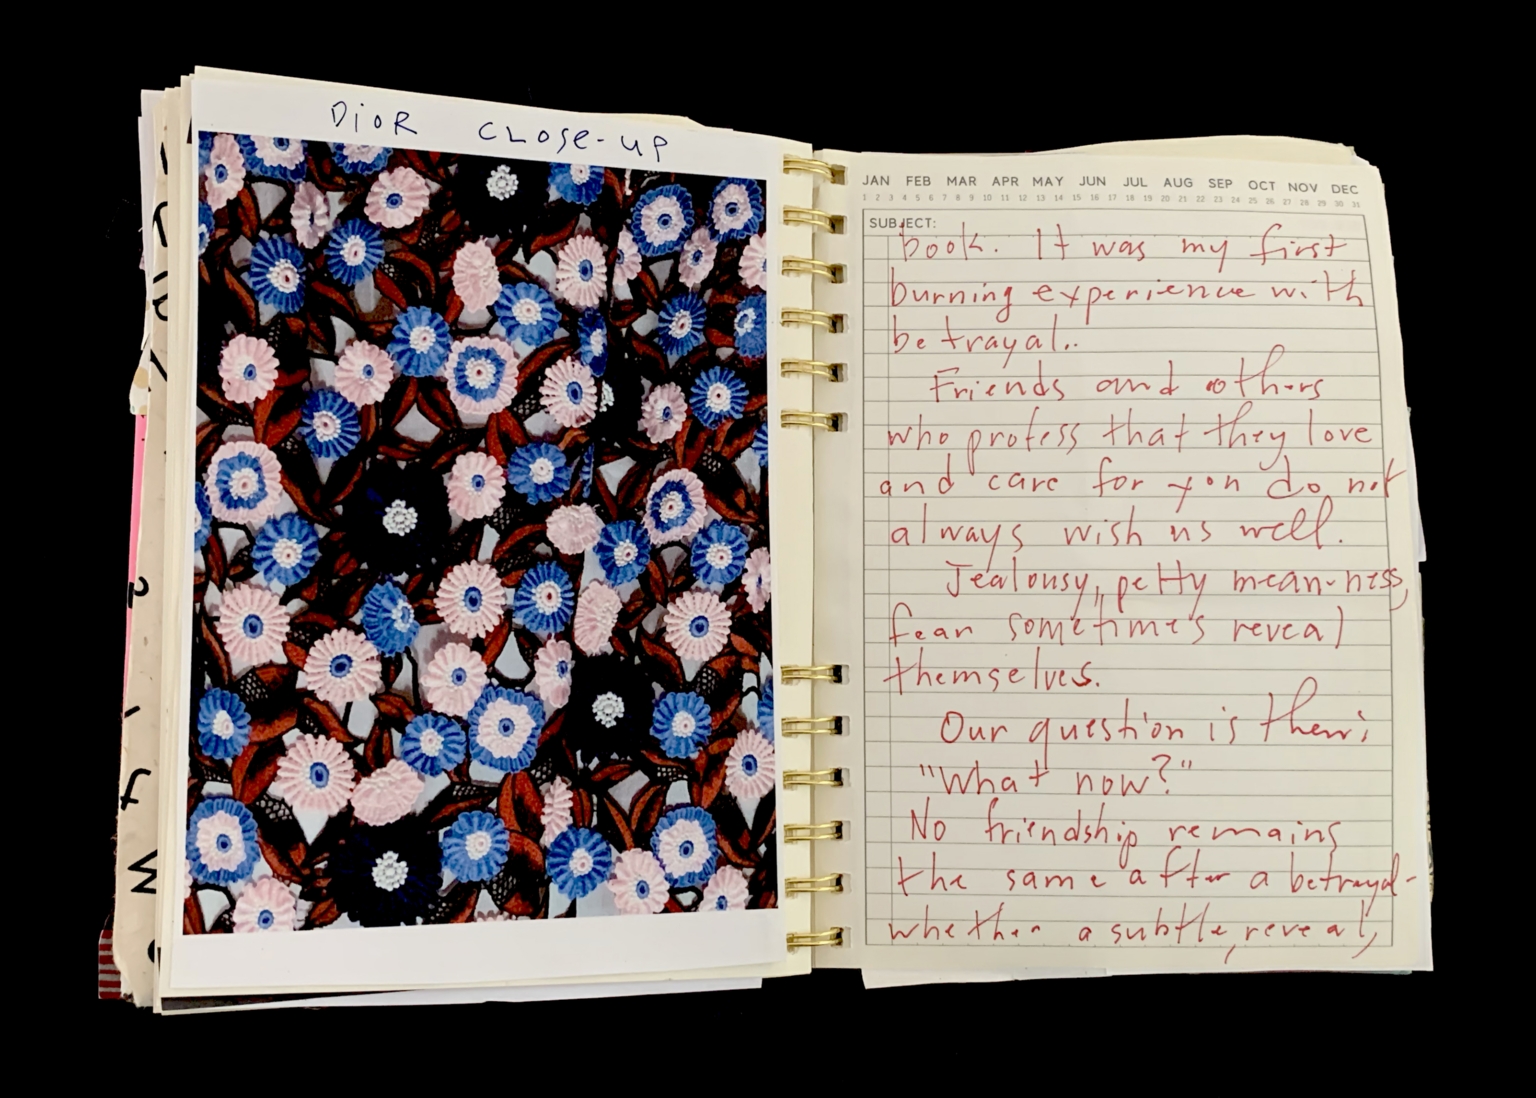 DioR CLOSe-UP
JAN FEB MAR APR MAY JUN JUL AUG SEP OCT NOV DEC
1 2 3 4 5 6 7 8 9 10 11 12 13 14 15 16 17 18 19 20 21 22 23 24 25 26 27 28 29 30 31
SUBJECT:
book. It was my first
burning experience with
betrayal..
Friends and others
who profess that they love
and care for you do not
always wish us well.
Jealousy, petty mean-ness,
fear sometimes reveal
themselves.
Our question is then:
"What now?"
No friendship remains
the same after a betrayal-
whether a subtle, reveal,